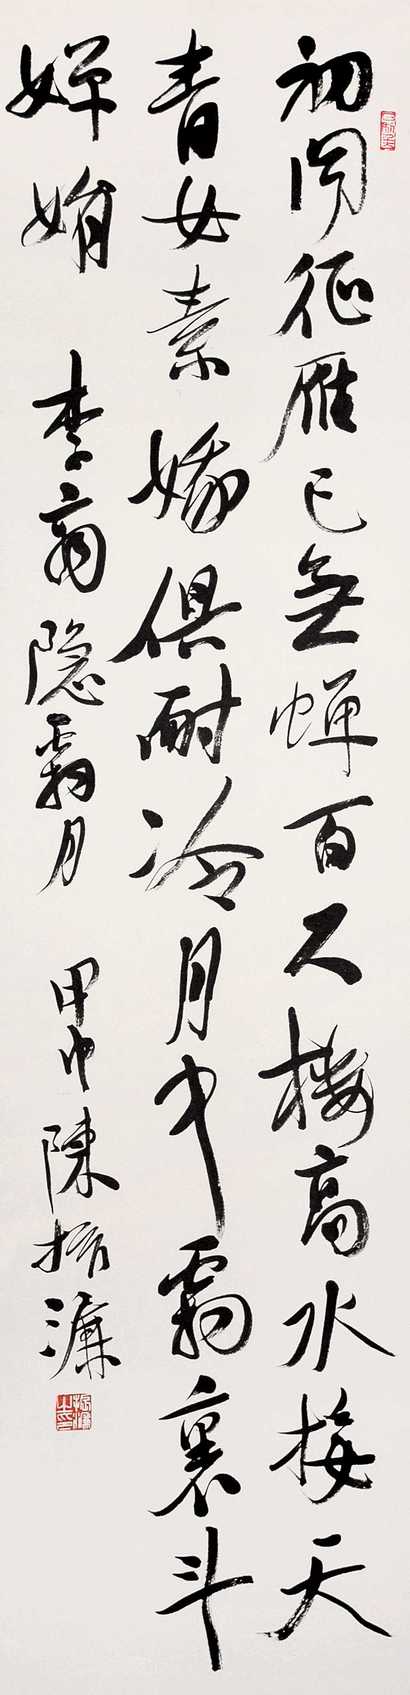 初闻征雁已無蝉百尺楼高水接天
青女素娥俱耐冷月中霜裏斗
婵娟 李商隐霜月 甲申陳振濂